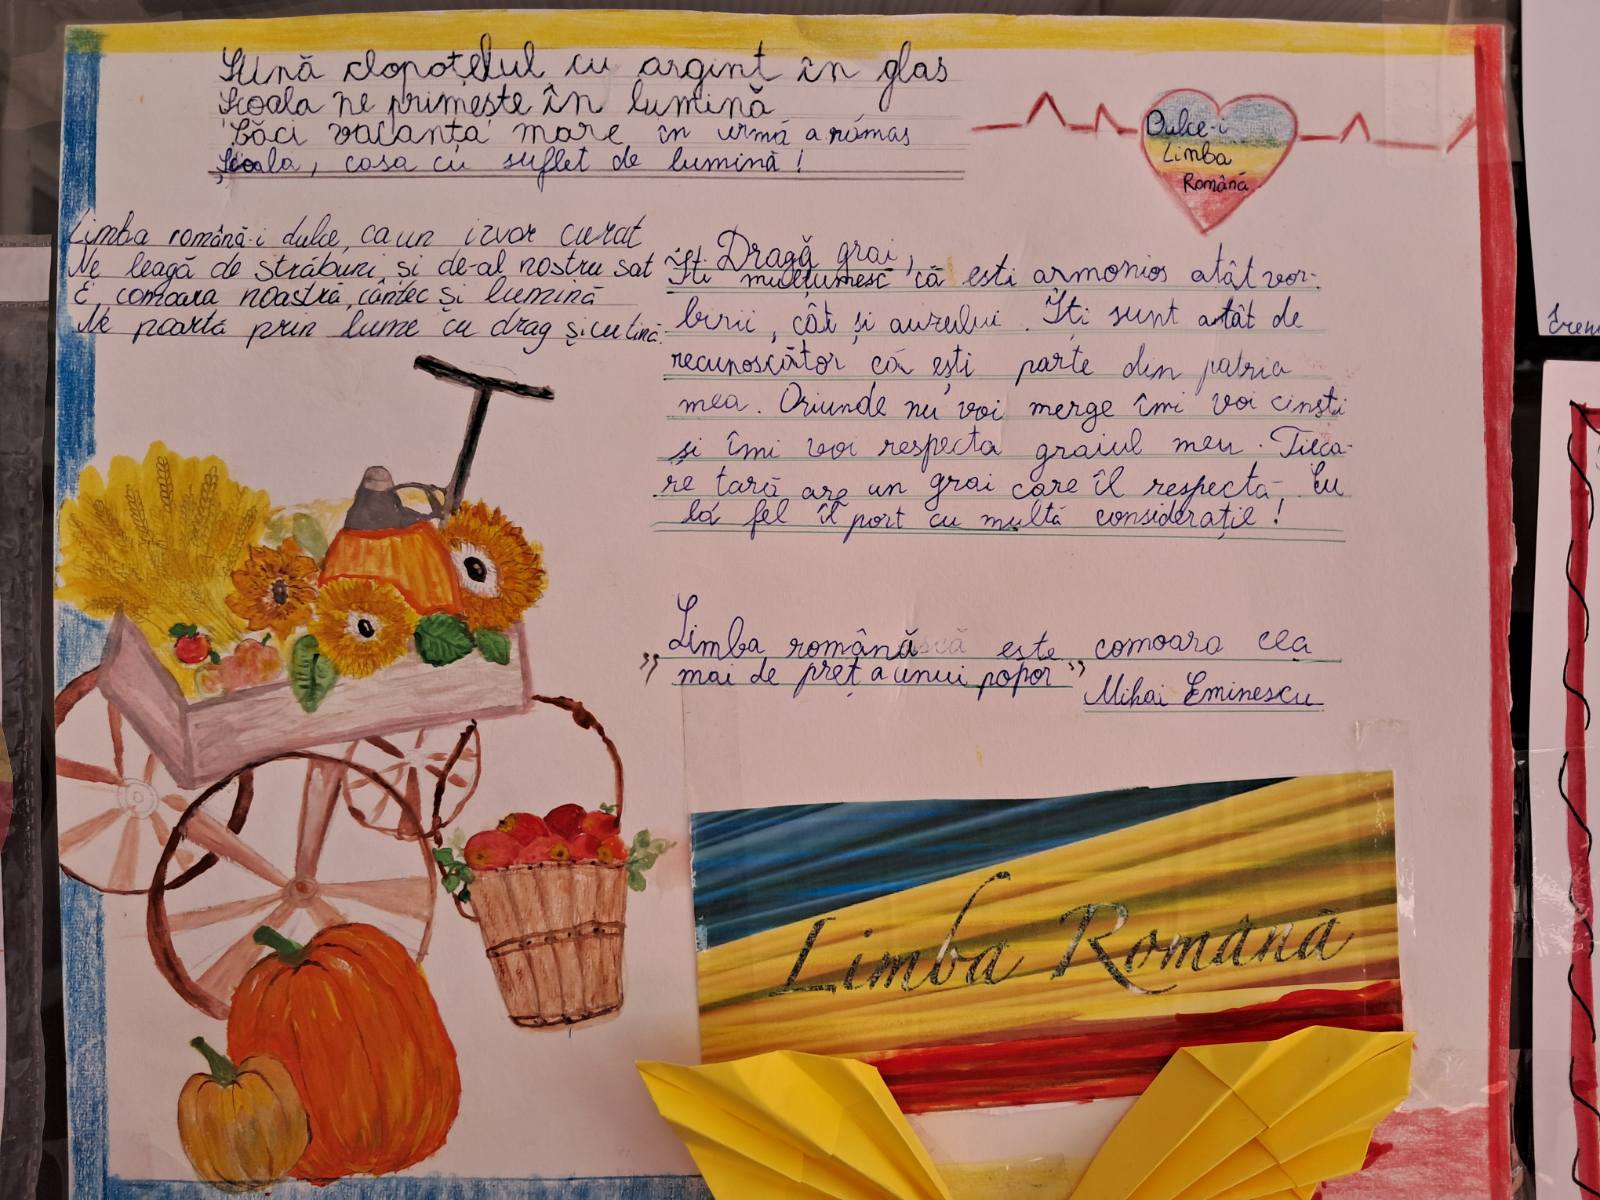 Sună clopoțelul cu argint în glas
Școala ne primește în lumină
Căci vacanța mare în urmă a rămas
Școala, casa cu suflet de lumină!
Dulce-i
Limba
Română
Limba română-i dulce, ca un izvor curat
Ne leagă de străbuni și de-al nostru sat
E comoara noastră, cântec și lumină
Ne poartă prin lume cu drag și cu tină.
Dragă grai,
Îți mulțumesc că ești armonios atât vor-
birii, cât și auzului. Îți sunt atât de
recunoscător că ești parte din patria
mea. Oriunde nu voi merge îmi voi cinsti
și îmi voi respecta graiul meu. Fieca-
re țară are un grai care îl respectă. Eu
la fel îl port cu multă considerație!
„Limba română este comoara cea
mai de preț a unui popor”
Mihai Eminescu
Limba Română